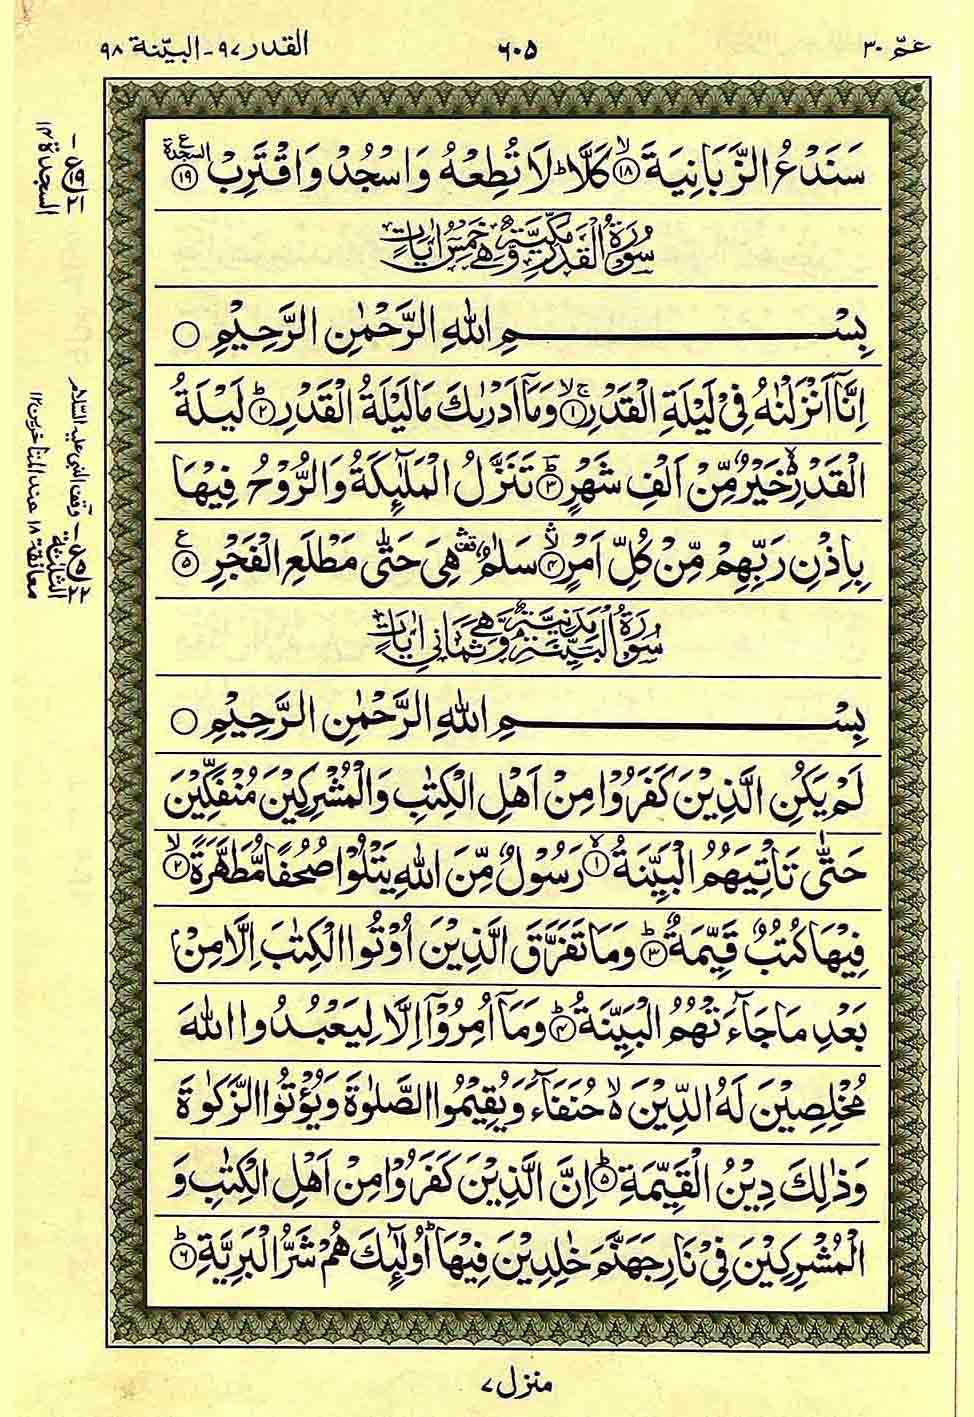 عمّ ۳۰
۶۰۵
القدر ۹۷ - البيّنة ۹۸
سَنَدْعُ الزَّبَانِيَةَ ﴿۱۸﴾ كَلَّا ؕ لَا تُطِعْهُ وَاسْجُدْ وَاقْتَرِبْ ﴿۱۹﴾ السجدة
سُوْرَةُ الْقَدْرِ مَكِّيَّةٌ وَّهِيَ خَمْسُ اٰيَاتٍ
بِسْمِ اللهِ الرَّحْمٰنِ الرَّحِيْمِ ○
اِنَّآ اَنْزَلْنٰهُ فِيْ لَيْلَةِ الْقَدْرِ ﴿۱﴾ وَمَآ اَدْرٰىكَ مَا لَيْلَةُ الْقَدْرِ ﴿۲﴾ لَيْلَةُ
الْقَدْرِ خَيْرٌ مِّنْ اَلْفِ شَهْرٍ ﴿۳﴾ تَنَزَّلُ الْمَلٰٓئِكَةُ وَالرُّوْحُ فِيْهَا
بِاِذْنِ رَبِّهِمْ مِّنْ كُلِّ اَمْرٍ ﴿۴﴾ سَلٰمٌ هِيَ حَتّٰى مَطْلَعِ الْفَجْرِ ﴿۵﴾
سُوْرَةُ الْبَيِّنَةِ مَدَنِيَّةٌ وَّهِيَ ثَمَانِيْ اٰيَاتٍ
بِسْمِ اللهِ الرَّحْمٰنِ الرَّحِيْمِ ○
لَمْ يَكُنِ الَّذِيْنَ كَفَرُوْا مِنْ اَهْلِ الْكِتٰبِ وَالْمُشْرِكِيْنَ مُنْفَكِّيْنَ
حَتّٰى تَاْتِيَهُمُ الْبَيِّنَةُ ﴿۱﴾ رَسُوْلٌ مِّنَ اللهِ يَتْلُوْا صُحُفًا مُّطَهَّرَةً ﴿۲﴾
فِيْهَا كُتُبٌ قَيِّمَةٌ ﴿۳﴾ وَمَا تَفَرَّقَ الَّذِيْنَ اُوْتُوا الْكِتٰبَ اِلَّا مِنْۢ
بَعْدِ مَا جَآءَتْهُمُ الْبَيِّنَةُ ﴿۴﴾ وَمَآ اُمِرُوْٓا اِلَّا لِيَعْبُدُوا اللهَ
مُخْلِصِيْنَ لَهُ الدِّيْنَ ۙ حُنَفَآءَ وَيُقِيْمُوا الصَّلٰوةَ وَيُؤْتُوا الزَّكٰوةَ
وَذٰلِكَ دِيْنُ الْقَيِّمَةِ ﴿۵﴾ اِنَّ الَّذِيْنَ كَفَرُوْا مِنْ اَهْلِ الْكِتٰبِ وَ
الْمُشْرِكِيْنَ فِيْ نَارِ جَهَنَّمَ خٰلِدِيْنَ فِيْهَا ؕ اُولٰٓئِكَ هُمْ شَرُّ الْبَرِيَّةِ ﴿۶﴾
السجدة ۱۴
وقف النبى عليه السّلام
معانقة ۱۸ عند المتأخرين ۱۲
الثلٰثة
منزل ۷